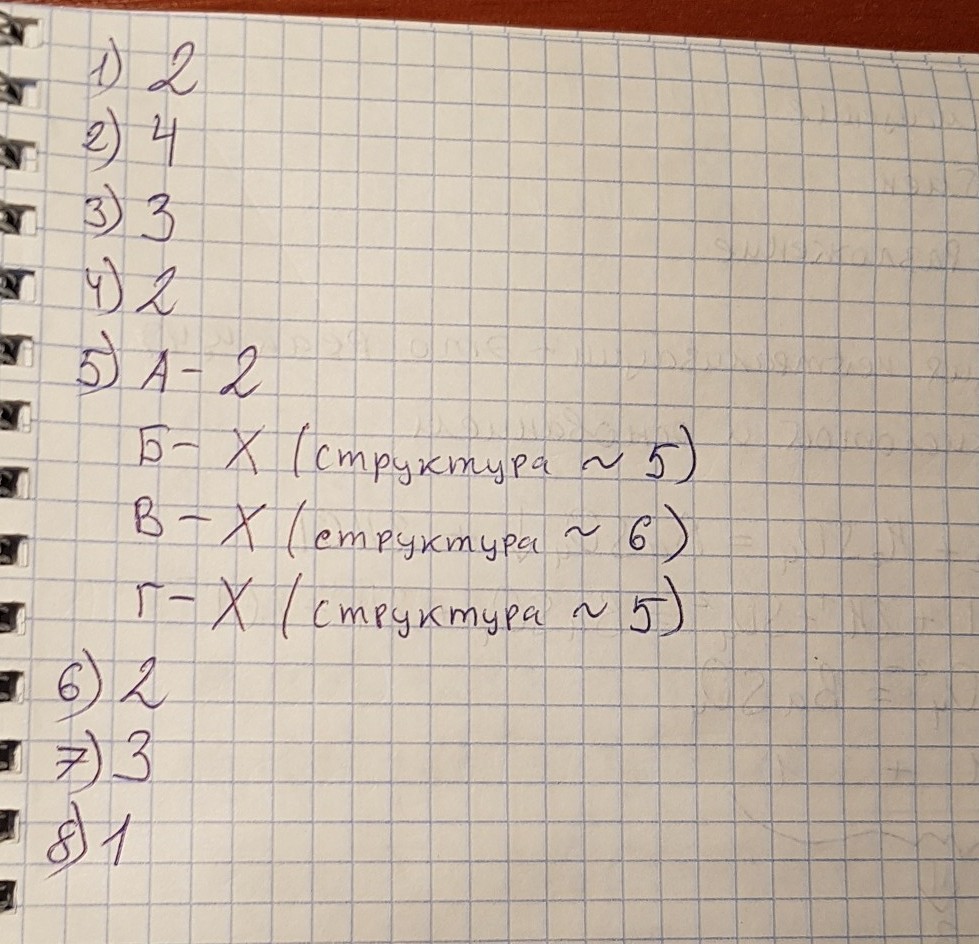 1) 2
2) 4
3) 3
4) 2
5) А - 2
Б - Х (структура ~ 5)
В - Х (структура ~ 6)
Г - Х (структура ~ 5)
6) 2
7) 3
8) 1